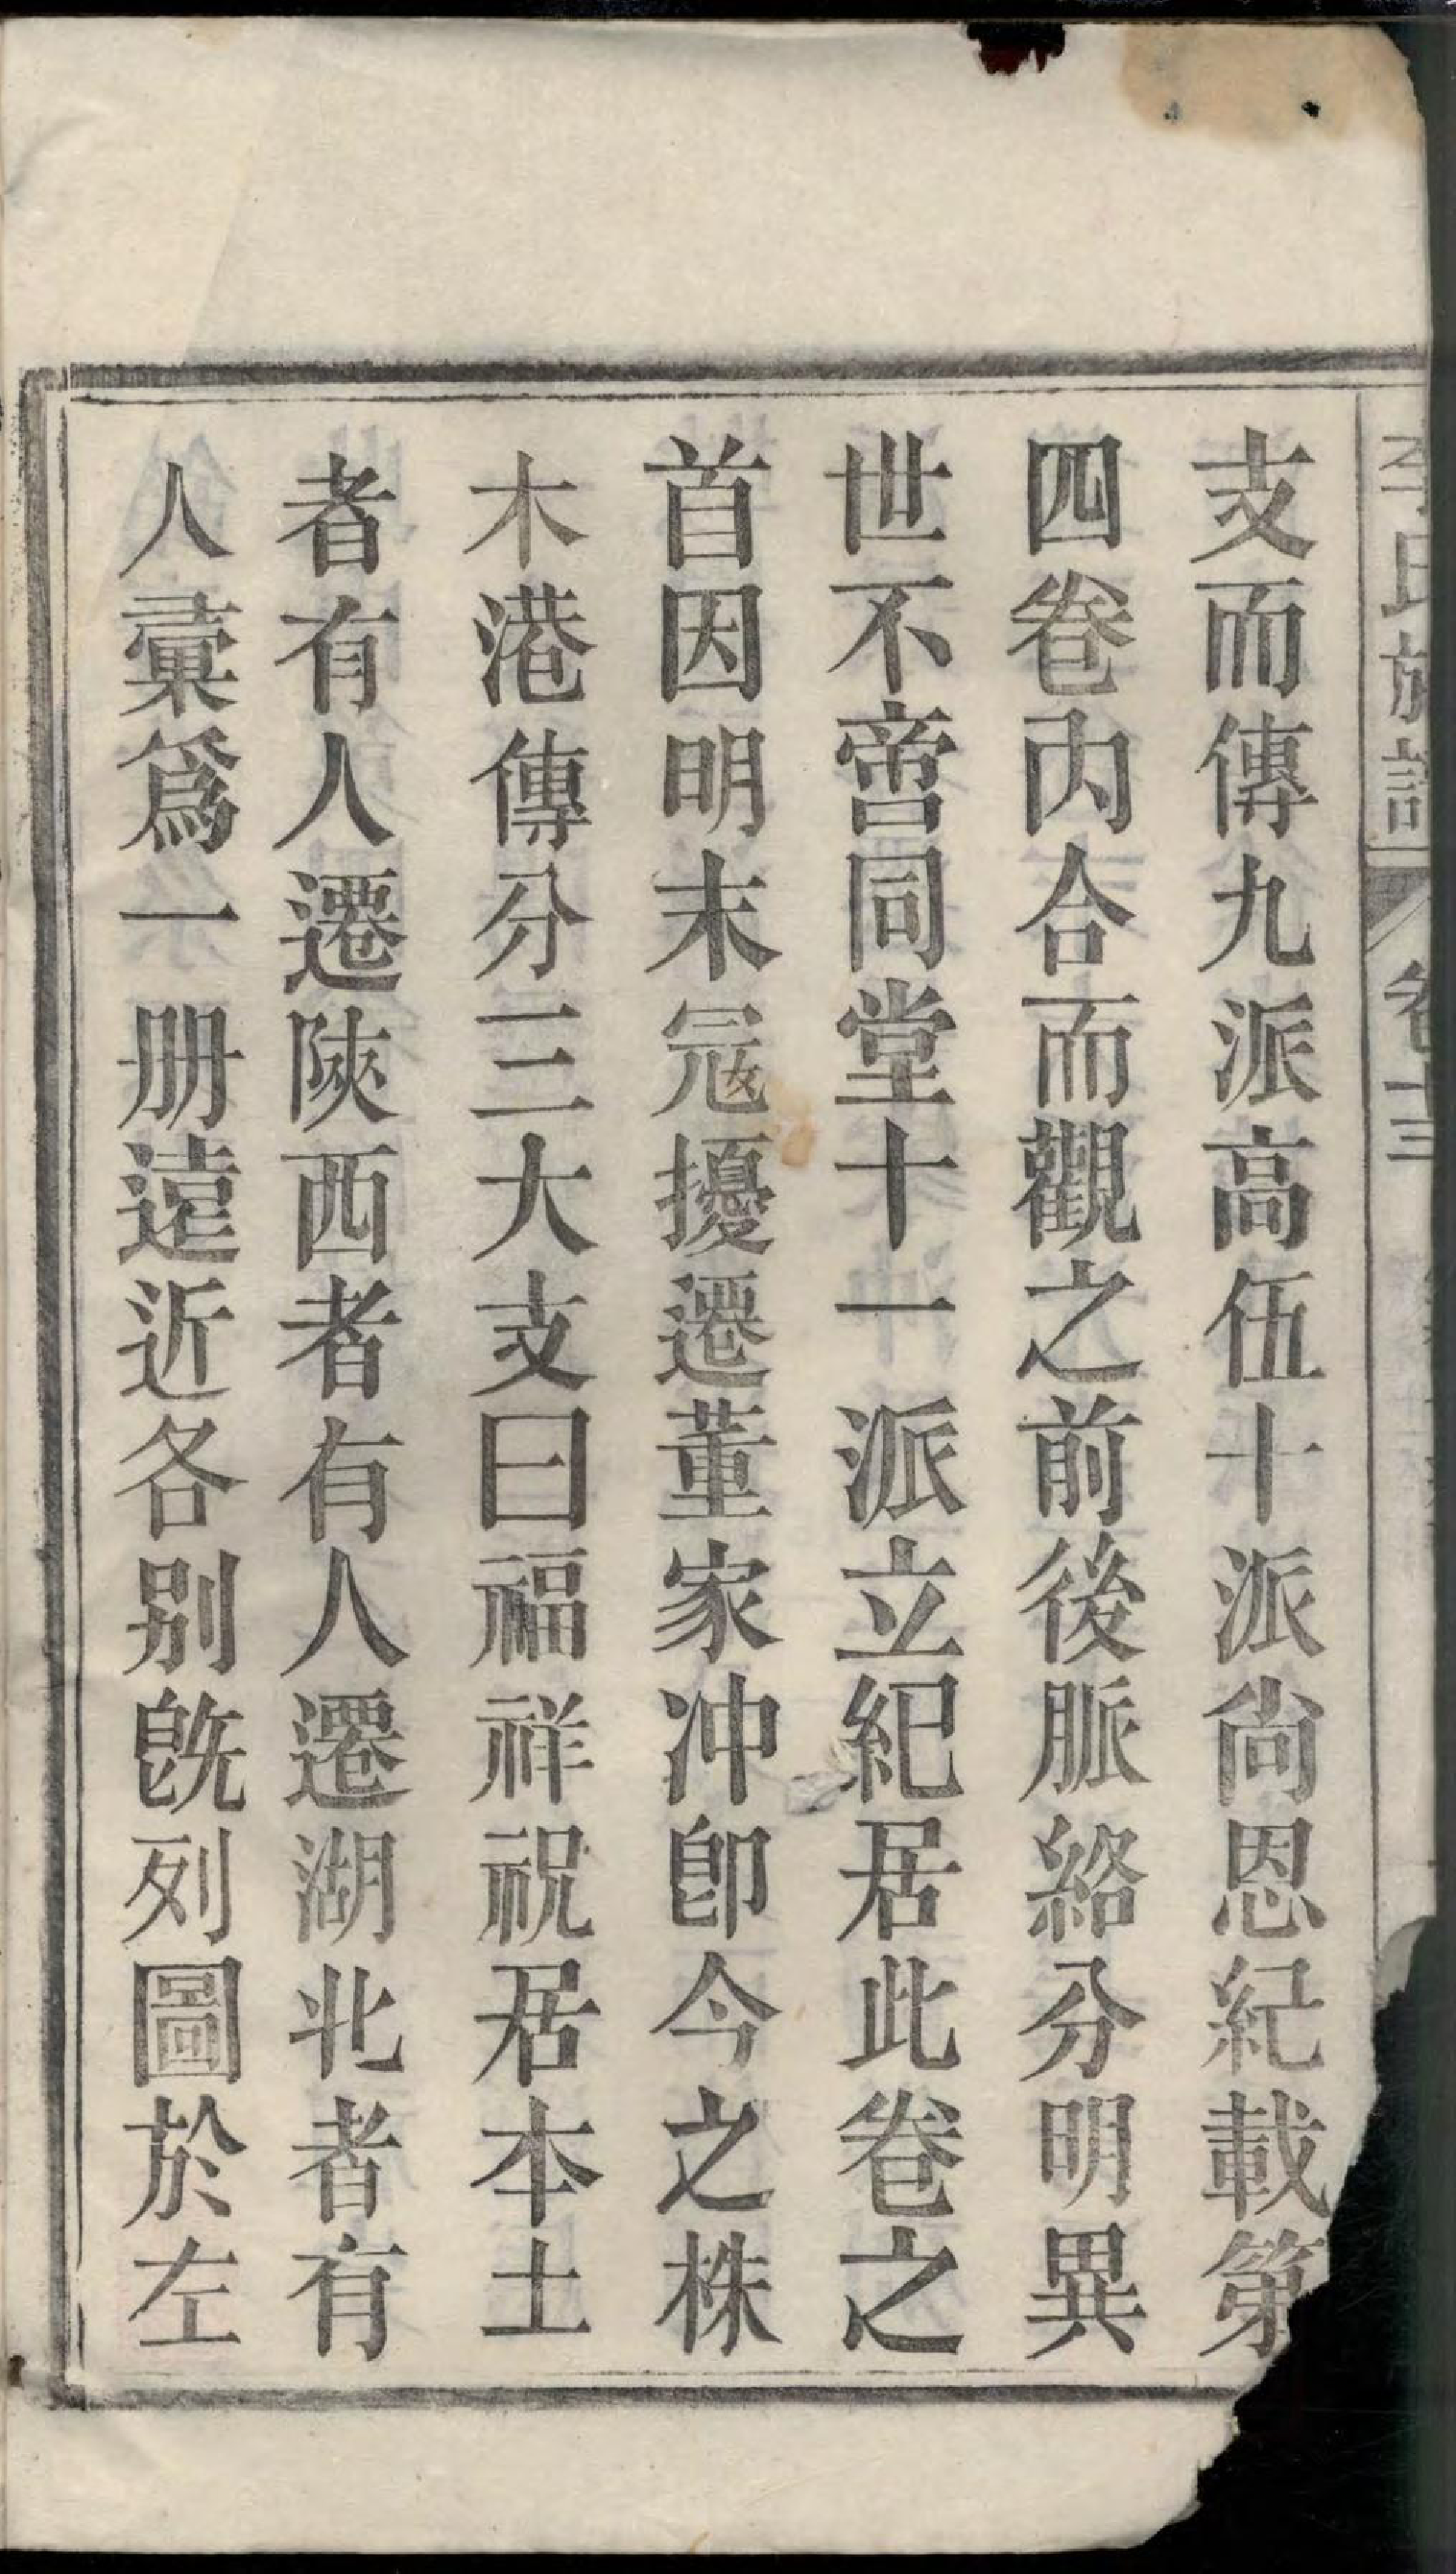 李氏族譜 卷十三
支而傳九派高伍十派尙恩紀載第
四卷內合而觀之前後脈絡分明異
世不啻同堂十一派立紀居此卷之
首因明末冦擾遷董家冲卽今之株
木港傳分三大支曰福祥祝居本土
者有人遷陝西者有人遷湖北者有
人彙爲一册遠近各别旣列圖於左